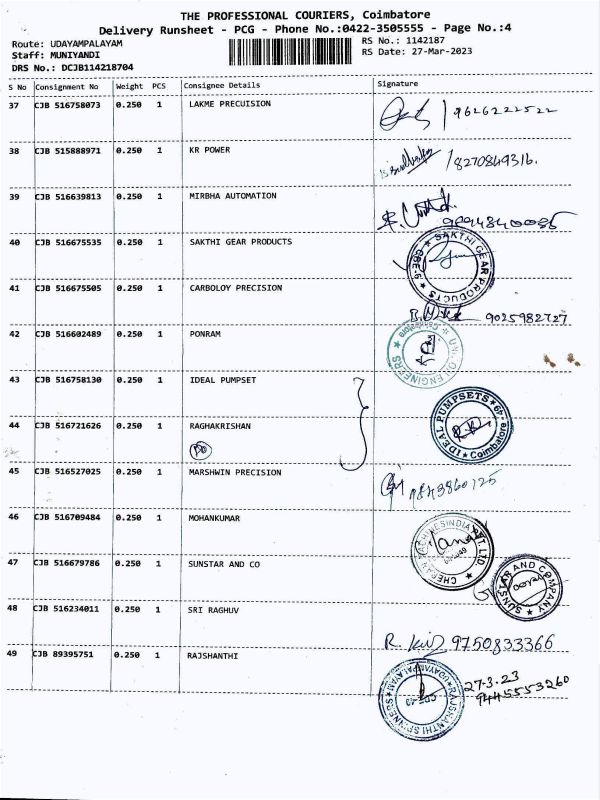 THE PROFESSIONAL COURIERS, Coimbatore
Delivery Runsheet - PCG - Phone No.:0422-3505555 - Page No.:4
Route: UDAYAMPALAYAM RS No.: 1142187
Staff: MUNIYANDI RS Date: 27-Mar-2023
DRS No.: DCJB114218704
S No Consignment No Weight PCS Consignee Details Signature
37 CJB 516758073 0.250 1 LAKME PRECUISION 9626222522
38 CJB 515888971 0.250 1 KR POWER 8270849316.
39 CJB 516639813 0.250 1 MIRBHA AUTOMATION 9894840085
40 CJB 516675535 0.250 1 SAKTHI GEAR PRODUCTS SAKTHI GEAR PRODUCTS ★ CBE-6 ★
41 CJB 516675505 0.250 1 CARBOLOY PRECISION 9025982727
42 CJB 516602489 0.250 1 PONRAM UNION ENGINEERS ★ Coimbatore
43 CJB 516758130 0.250 1 IDEAL PUMPSET
44 CJB 516721626 0.250 1 RAGHAKRISHAN IDEAL PUMPSETS ★ Coimbatore-49
45 CJB 516527025 0.250 1 MARSHWIN PRECISION 9843860125
46 CJB 516709484 0.250 1 MOHANKUMAR CHERAN MACHINES INDIA PVT LTD.
47 CJB 516679786 0.250 1 SUNSTAR AND CO SUNSTAR AND COMPANY
48 CJB 516234011 0.250 1 SRI RAGHUV R. 9750833366
49 CJB 89395751 0.250 1 RAJSHANTHI RAJSHANTHI SPINNERS ★ UDAYAMPALAYAM
27-3.23
9445553260